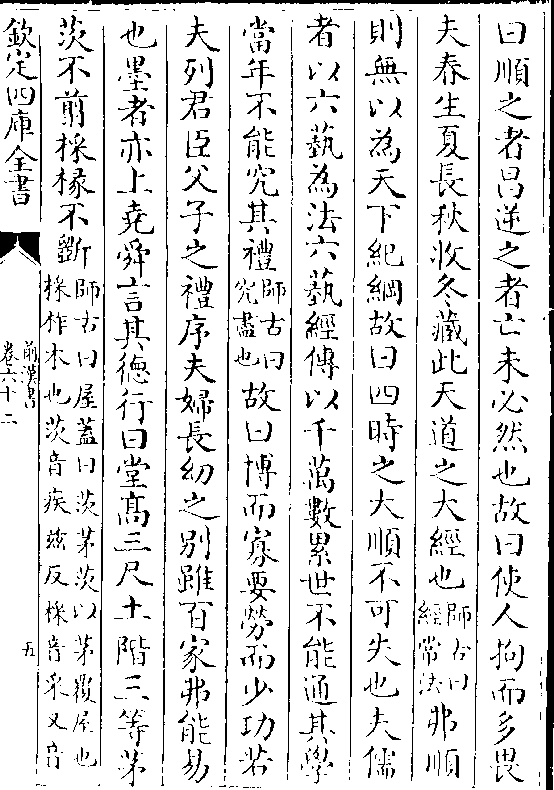 曰順之者昌逆之者亡未必然也故曰使人拘而多畏
夫春生夏長秋收冬藏此天道之大經也師古曰經常法弗順
則無以為天下紀綱故曰四時之大順不可失也夫儒
者以六藝為法六藝經傳以千萬數累世不能通其學
當年不能究其禮師古曰究盡也故曰博而寡要勞而少功若
夫列君臣父子之禮序夫婦長幼之別雖百家弗能易
也墨者亦上堯舜言其德行曰堂髙三尺土階三等茅
茨不剪採椽不斵師古曰屋蓋曰茨茅茨以茅覆屋也採柞木也茨音疾兹反採音采又音
欽定四庫全書
前漢書
卷六十二
五